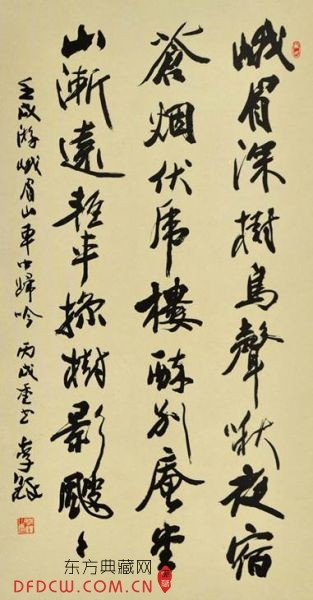 峨眉深樹鳥聲啾夜宿
蒼烟伏虎樓醉別庵堂
山漸遠輕車掠樹影颼〻
壬戌游峨眉山車中歸吟 丙戌重书 李鐸
东方典藏网
DFDCW.COM.CN